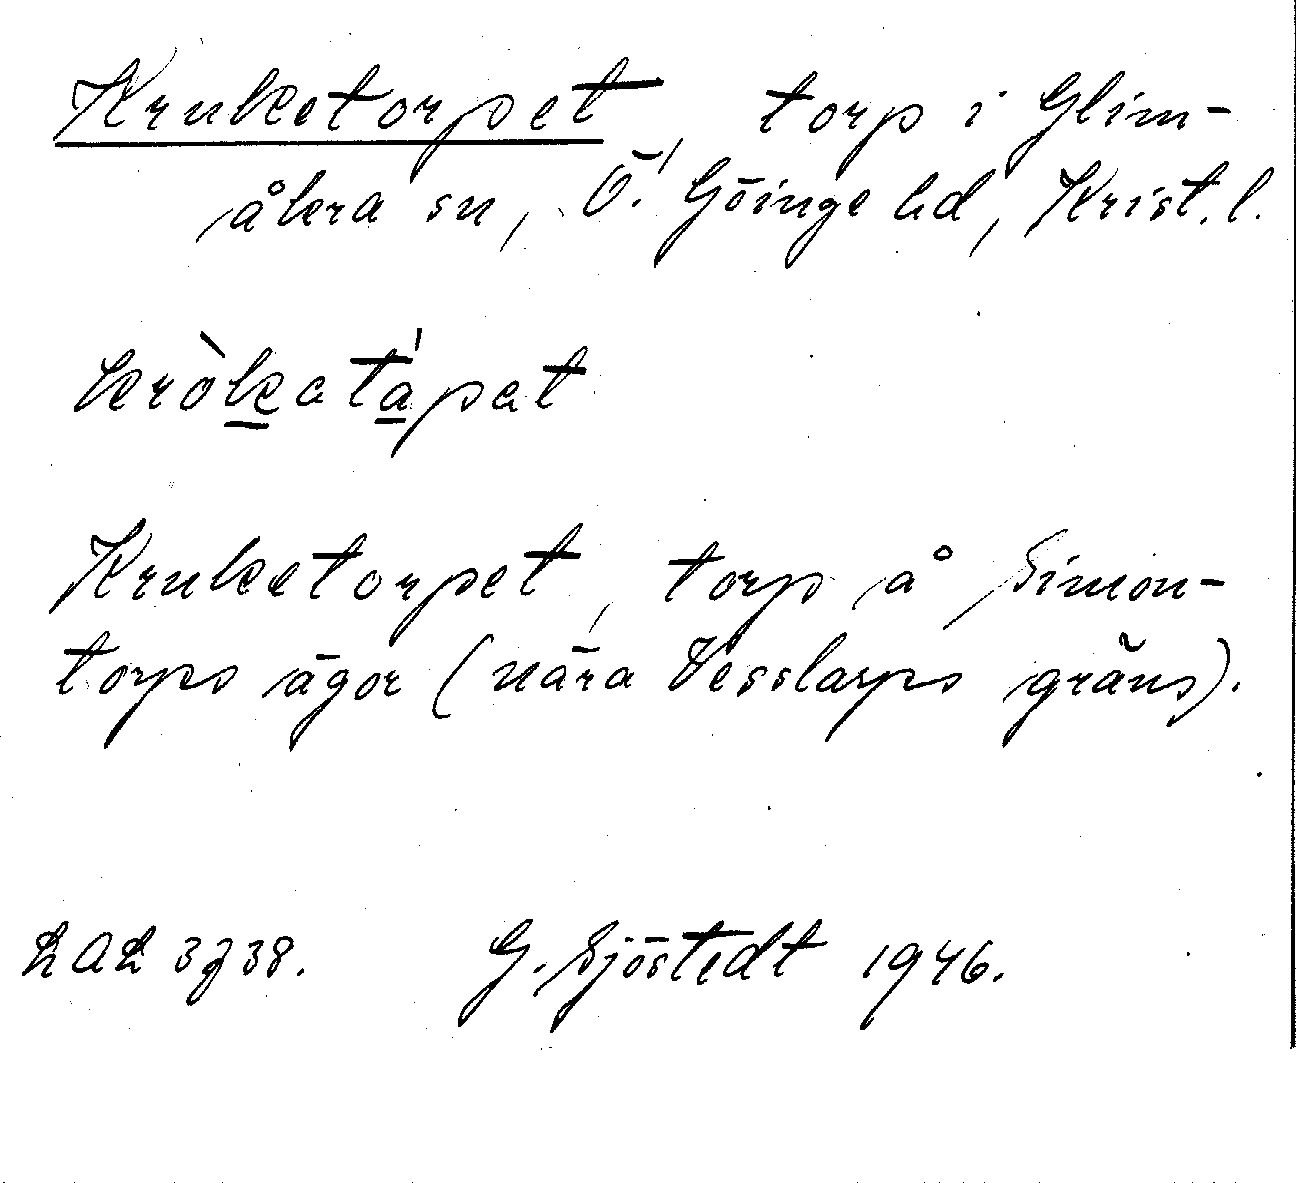 Kruketorpet, torp i Glim-
åkra sn, Ö. Göinge hd, Krist. l.
kròkatápat
Kruketorpet, torp å Simon-
torps ägor (nära Vesslarps gräns).
LAL 3738. G. Sjöstedt 1946.